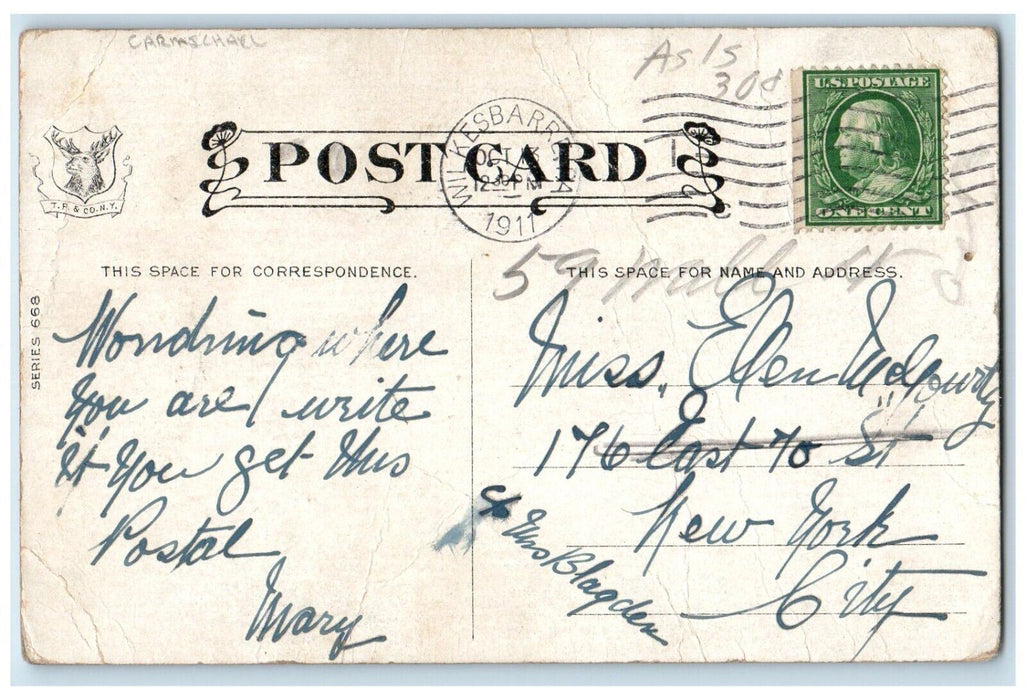 CARMSCHAEL
As Is
30¢
U.S. POSTAGE
ONE CENT
T. R. & CO. N.Y.
POST CARD
WILKESBARRE, PA
OCT 3
12 30 PM
1911
THIS SPACE FOR CORRESPONDENCE.
THIS SPACE FOR NAME AND ADDRESS.
59 Wall St
SERIES 668
Wondring where
You are / write
if you get this
Postal
Mary
Miss. Elen
176 East 70 St
New York
City
c/o Mrs Blagden